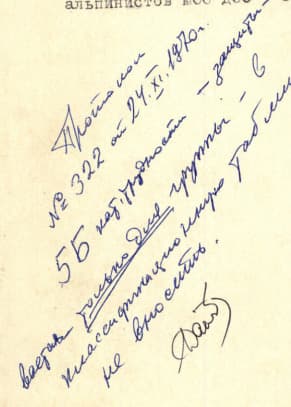 альпинистов
Протокол
№ 322 от 24.XI.1970г.
5Б кат. трудности – защиты-
вается только для группы – в
классификационную таблицу
не вносить.